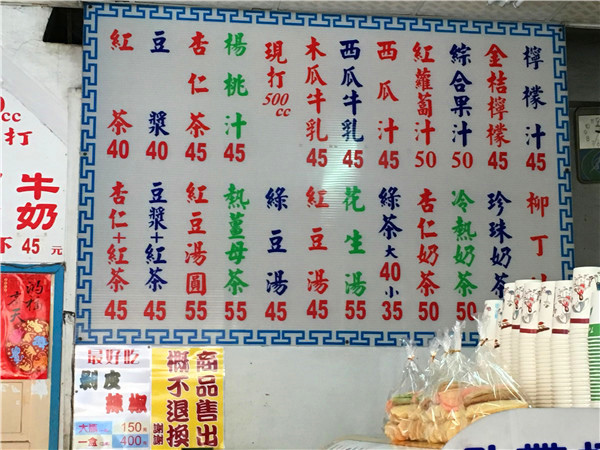 紅茶 40
豆漿 40
杏仁茶 45
楊桃汁 45
現打 500cc
木瓜牛乳 45
西瓜牛乳 45
西瓜汁 45
紅蘿蔔汁 50
綜合果汁 50
金桔檸檬 45
檸檬汁 45
杏仁+紅茶 45
豆漿+紅茶 45
紅豆湯圓 55
熱薑母茶 55
綠豆湯 45
紅豆湯 45
花生湯 55
綠茶大40小35
杏仁奶茶 50
冷熱奶茶 50
珍珠奶茶
柳丁
打
牛奶
下 45 元
最好吃
剝皮
辣椒
150元
一盒 400元
商品售出
概不退換
謝謝